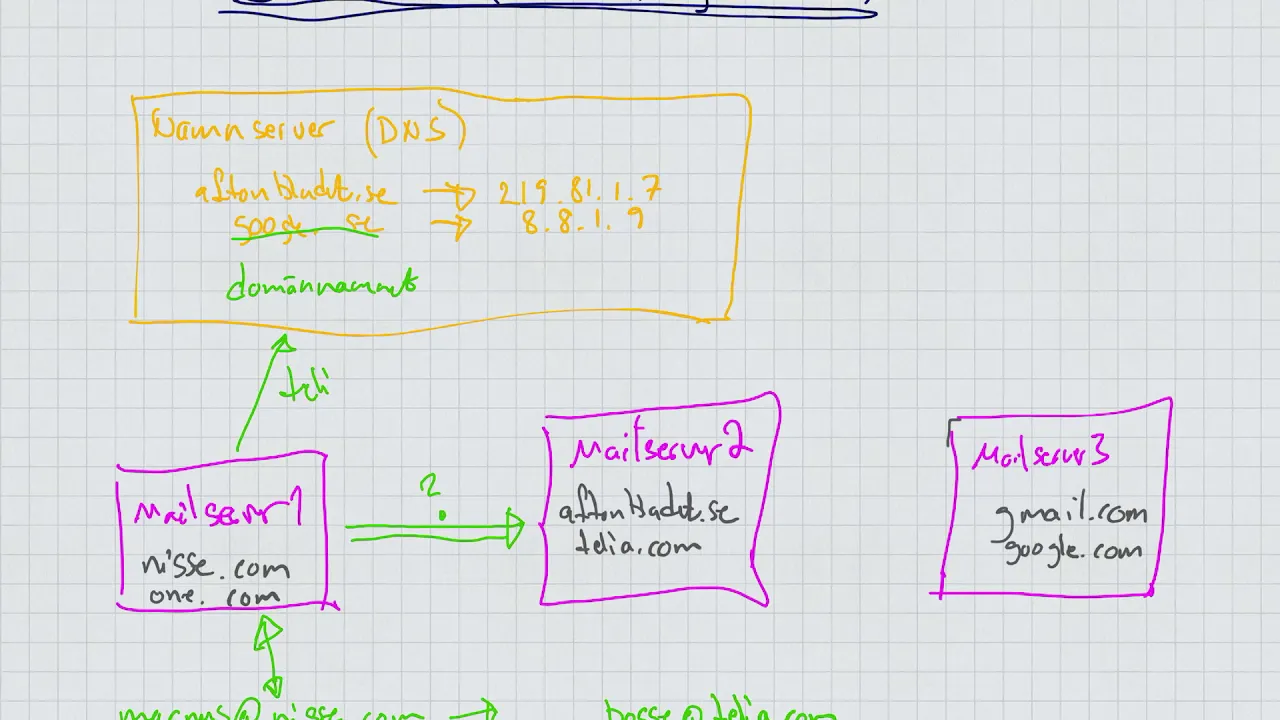 Namnserver (DNS)
aftonbladet.se → 219.81.1.7
google.se → 8.8.1.9
domännamnet
teli
Mailserver 1
nisse.com
one.com
?
Mailserver 2
aftonbladet.se
telia.com
Mailserver 3
gmail.com
google.com
magnus@nisse.com → bosse@telia.com